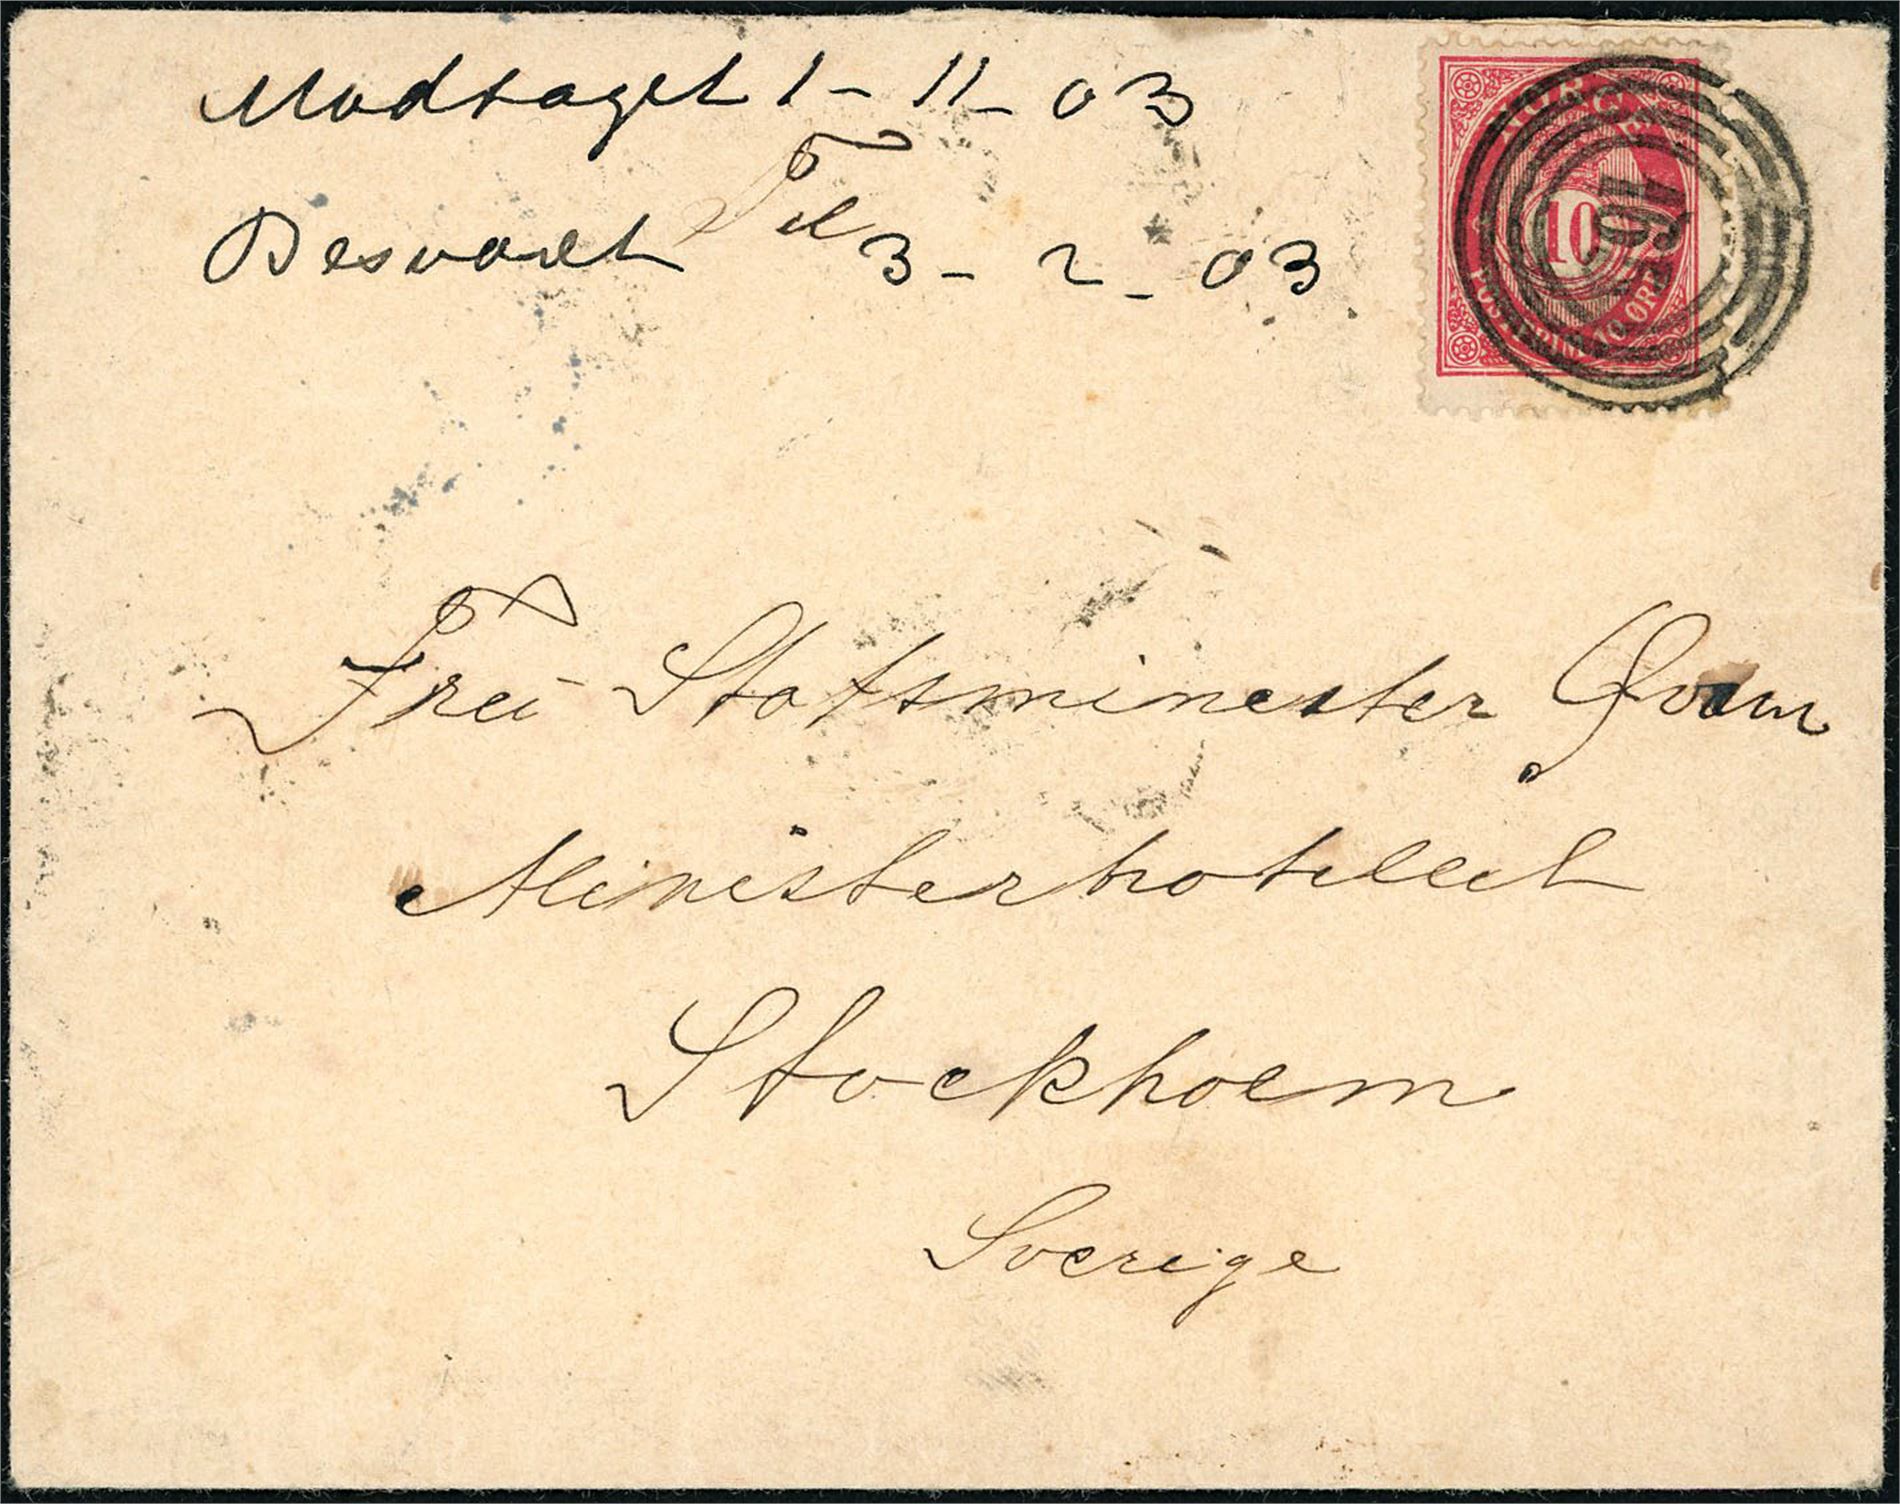 Modtaget 1 - 11 - 03
Besvaret Fel 3 - 2 - 03
NORGE
10
POSTFRIM. 10 ØRE
Fru Statsminester Qvam
Ministerhotellet
Stockholm
Sverige